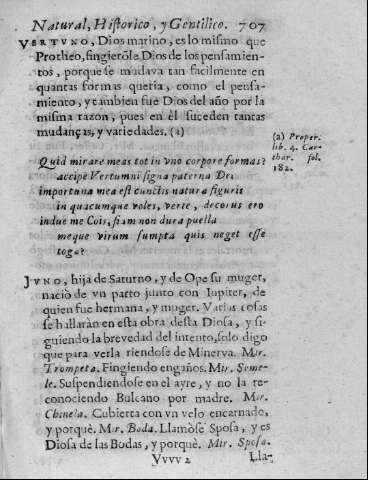 Natural, Historico, y Gentilico. 707
VERTVNO, Dios marino, es lo mismo que
Protheo, fingierõle Dios de los pensamien-
tos, porque se mudava tan facilmente en
quantas formas queria, como el pensa-
miento, y tambien fue Dios del año por la
misma razon, pues en èl suceden tantas
mudanças, y variedades. (2)
(2) Proper.
lib. 4. Car-
thar. fol.
182.
Quid mirare meas tot in vno corpore formas?
accipe Vertumni signa paterna Dei
importuna mea est cunctis natura figuris
in quacumque voles, verte, decorus ero
indue me Cois, fiam non dura puella
meque virum sumpta quis neget esse
toga?
JVNO, hija de Saturno, y de Ope su muger,
naciò de vn parto junto con Iupiter, de
quien fue hermana, y muger. Varias cosas
se hallaràn en esta obra desta Diosa, y si-
guiendo la brevedad del intento, solo digo
que para verla riendose de Minerva. Mir.
Trompeta. Fingiendo engaños. Mir. Seme-
le. Suspendiendose en el ayre, y no la re-
conociendo Bulcano por madre. Mir.
Chinela. Cubierta con vn velo encarnado,
y porquè. Mir. Boda. Llamòse Sposa, y es
Diosa de las Bodas, y porquè. Mir. Sposa.
Yyyy 2 Lla-